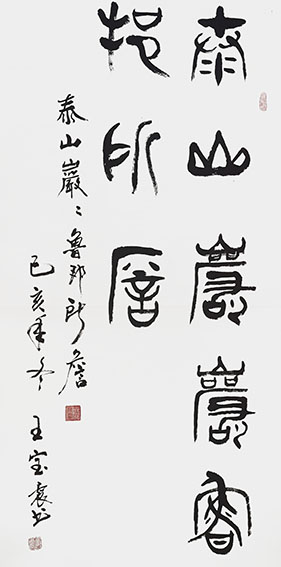 泰山巖巖魯
邦所詹
泰山巖〻魯邦所詹
己亥年冬 王宝书